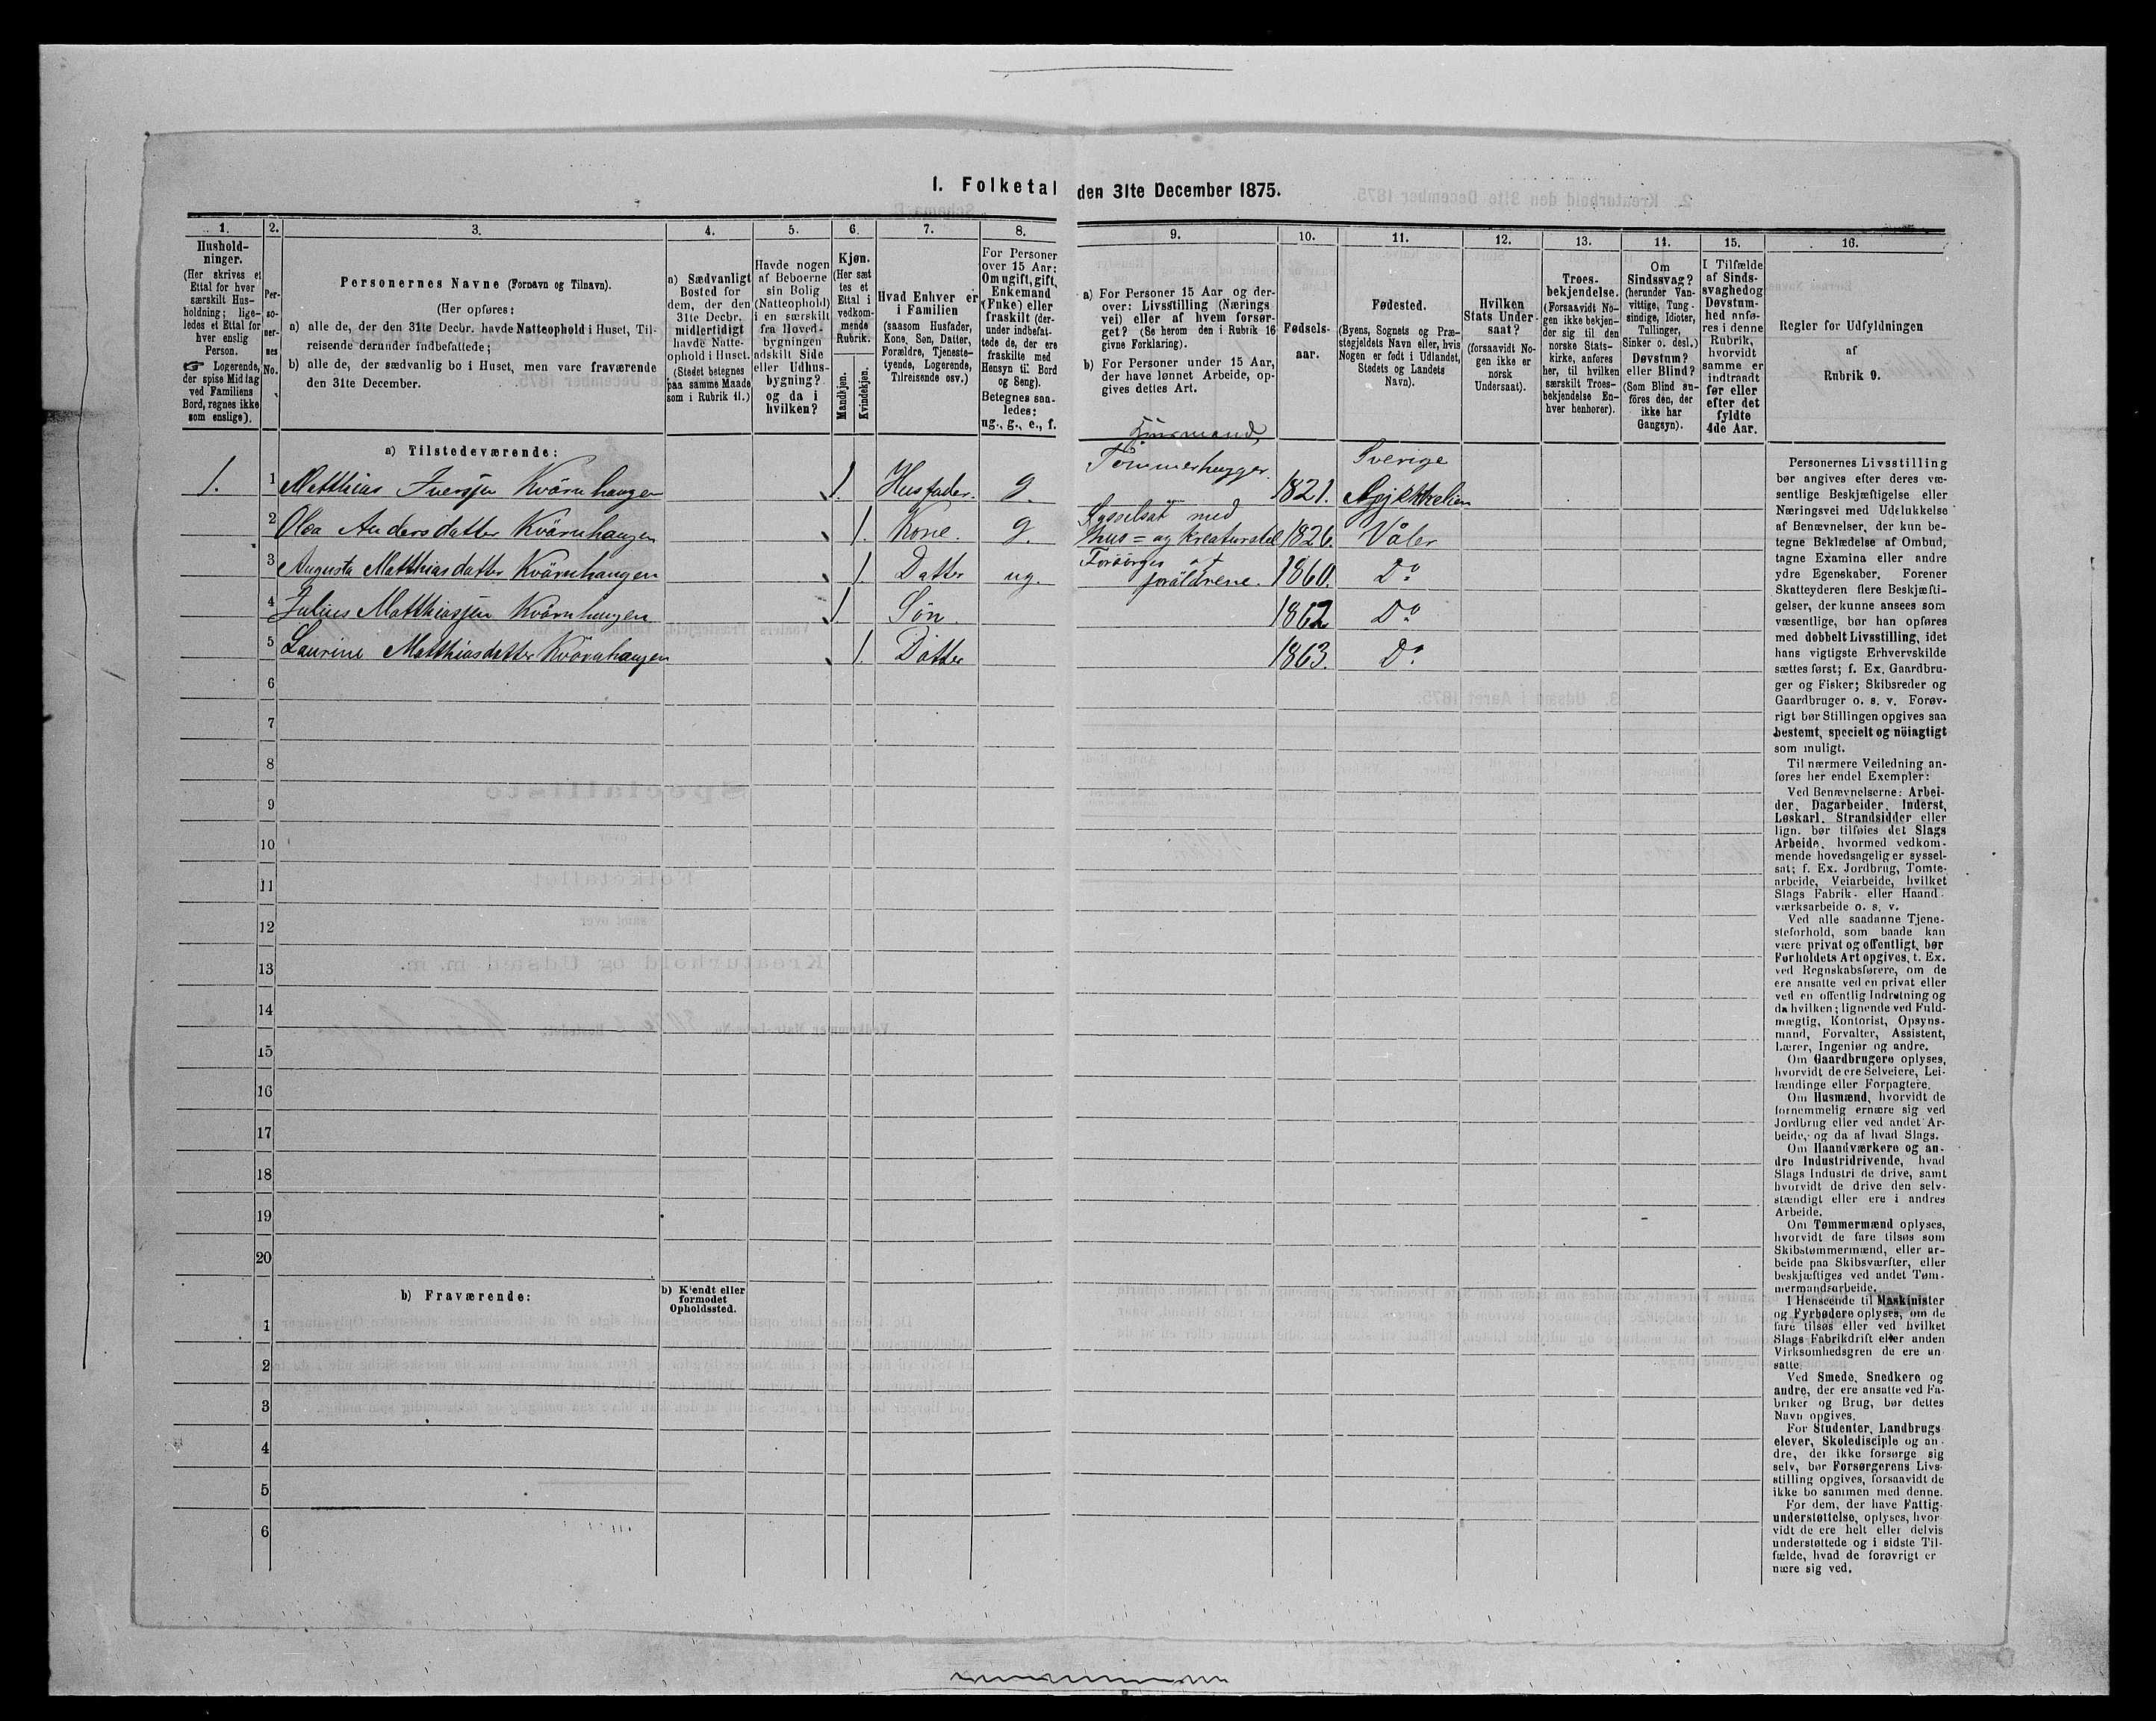 1. Folketal den 31te December 1875.
1. 2. 3. 4. 5. 6. 7. 8. 9. 10. 11. 12. 13. 14. 15. 16.
Hushold-
ninger.
(Her skrives et
Ettal for hver
særskilt Hus-
holdning; lige-
ledes et Ettal for
hver enslig
Person.
☞ Logerende,
der spise Middag
ved Familiens
Bord, regnes ikke
som enslige).
Per-
so-
ner-
nes
No.
Personernes Navne (Fornavn og Tilnavn).
(Her opføres:
a) alle de, der den 31te Decbr. havde Natteophold i Huset, Til-
reisende derunder indbefattede;
b) alle de, der sædvanlig bo i Huset, men vare fraværende
den 31te December.
a) Sædvanligt
Bosted for
dem, der den
31te Decbr.
midlertidigt
havde Natte-
ophold i Huset.
(Stedet betegnes
paa samme Maade
som i Rubrik 11.)
Havde nogen
af Beboerne
sin Bolig
(Natteophold)
i en særskilt
fra Hoved-
bygningen
adskilt Side
eller Udhus-
bygning?
og da i
hvilken?
Kjøn.
(Her sæt
tes et
Ettal i
vedkom-
mende
Rubrik.
Mandkjøn.
Kvindekjøn.
Hvad Enhver er
i Familien
(saasom Husfader,
Kone, Søn, Datter,
Forældre, Tjeneste-
tyende, Logerende,
Tilreisende osv.)
For Personer
over 15 Aar:
Om ugift, gift,
Enkemand
(Enke) eller
fraskilt (der-
under indbefat-
tede de, der ere
fraskilte med
Hensyn til Bord
og Seng).
Betegnes saa-
ledes:
ug., g., e., f.
a) For Personer 15 Aar og der-
over: Livsstilling (Nærings
vei) eller af hvem forsør-
get? (Se herom den i Rubrik 16
givne Forklaring).
b) For Personer under 15 Aar,
der have lønnet Arbeide, op-
gives dettes Art.
Fødsels-
aar.
Fødested.
(Byens, Sognets og Præ-
stegjeldets Navn eller, hvis
Nogen er født i Udlandet,
Stedets og Landets
Navn).
Hvilken
Stats Under-
saat?
(forsaavidt No-
gen ikke er
norsk
Undersaat).
Troes-
bekjendelse.
(Forsaavidt No-
gen ikke bekjen-
der sig til den
norske Stats-
kirke, anføres
her, til hvilken
særskilt Troes-
bekjendelse En-
hver henhører).
Om
Sindssvag?
(herunder Van-
vittige, Tung-
sindige, Idioter,
Tullinger,
Sinker o. desl.)
Døvstum?
eller Blind?
(Som Blind an-
føres den, der
ikke har
Gangsyn).
I Tilfælde
af Sinds-
svaghed og
Døvstum-
hed anfø-
res i denne
Rubrik,
hvorvidt
samme er
indtraadt
før eller
efter det
fyldte
4de Aar.
Regler for Udfyldningen
af
Rubrik 9.
a) Tilstedeværende:
Husmand,
Tømmerhugger. Sverige
1. 1 Matthias Iversen Kvärnhaugen 1. Husfader. g. 1821.
Sysselsat med
2 Olea Andersdatter Kvärnhaugen 1. Kone. g. hus= og Kreaturstel 1826. Våler
Forsörges af
3 Augusta Matthiasdatter Kvärnhaugen 1 Datter ug. foräldrene. 1860. Do
4 Julius Matthiasjen Kvärnhaugen 1 Sön. 1862 Do
5 Laurine Matthiasdatter Kvärnhaugen 1. Datter 1863. Do
6
7
8
9
10
11
12
13
14
15
16
17
18
19
20
b) Fraværende:
b) Kjendt eller
formodet
Opholdssted.
1
2
3
4
5
6
Personernes Livsstilling
bør angives efter deres væ-
sentlige Beskjæftigelse eller
Næringsvei med Udelukkelse
af Benævnelser, der kun be-
tegne Beklædelse af Ombud,
tagne Examina eller andre
ydre Egenskaber. Forener
Skatteyderen flere Beskjæfti-
gelser, der kunne ansees som
væsentlige, bør han opføres
med dobbelt Livsstilling, idet
hans vigtigste Erhvervskilde
sættes først; f. Ex. Gaardbru-
ger og Fisker; Skibsreder og
Gaardbruger o. s. v. Forøv-
rigt bør Stillingen opgives saa
bestemt, specielt og nöiagtigt
som muligt.
Til nærmere Veiledning an-
føres her endel Exempler:
Ved Benævnelserne: Arbei-
der, Dagarbeider, Inderst,
Løskarl, Strandsidder eller
lign. bør tilføies det Slags
Arbeide, hvormed vedkom-
mende hovedsagelig er syssel-
sat; f. Ex. Jordbrug, Tomte-
arbeide, Veiarbeide, hvilket
Slags Fabrik- eller Haand-
værksarbeide o. s. v.
Ved alle saadanne Tjene-
steforhold, som baade kan
være privat og offentligt, bør
Forholdets Art opgives, f. Ex.
ved Regnskabsførere, om de
ere ansatte ved en privat eller
ved en offentlig Indretning og
da hvilken; lignende ved Fuld-
mægtig, Kontorist, Opsyns-
mand, Forvalter, Assistent,
Lærer, Ingeniør og andre.
Om Gaardbrugere oplyses,
hvorvidt de ere Selveiere, Lei-
lændinge eller Forpagtere.
Om Husmænd, hvorvidt de
fornemmelig ernære sig ved
Jordbrug eller ved andet Ar-
beide, og da af hvad Slags.
Om Haandværkere og an-
dre Industridrivende, hvad
Slags Industri de drive, samt
hvorvidt de drive den selv-
stændigt eller ere i andres
Arbeide.
Om Tømmermænd oplyses,
hvorvidt de fare tilsøs som
Skibstømmermænd, eller ar-
beide paa Skibsværfter, eller
beskjæftiges ved andet Tøm-
mermandsarbeide.
I Henseende til Maskinister
og Fyrbødere oplyses, om de
fare tilsøs eller ved hvilket
Slags Fabrikdrift eller anden
Virksomhedsgren de ere an-
satte.
Ved Smede, Snedkere og
andre, der ere ansatte ved Fa-
briker og Brug, bør dettes
Navn opgives.
For Studenter, Landbrugs-
elever, Skoledisciple og an-
dre, der ikke forsørge sig
selv, bør Forsørgerens Livs-
stilling opgives, forsaavidt de
ikke bo sammen med denne.
For dem, der have Fattig-
understøttelse, oplyses, hvor-
vidt de ere helt eller delvis
understøttede og i sidste Til-
fælde, hvad de forøvrigt er-
nære sig ved.